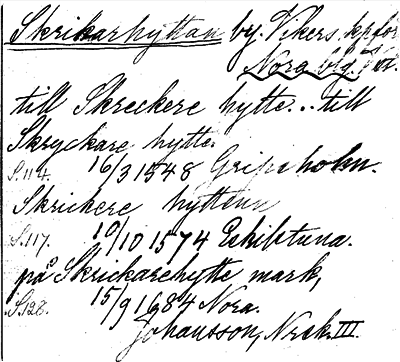 Skrikarhyttan by. Vikers kpför
Nora bg. Vstm.
till Skreckere hytte... till
Skryckare hytte.
S.114. 16/3 1548 Gripsholm.
Skrikere hyttenn
S.117. 10/10 1574 Eskilstuna.
på Skrickarehytte mark,
S.128. 15/9 1684 Nora.
Johansson, Nrak. III.